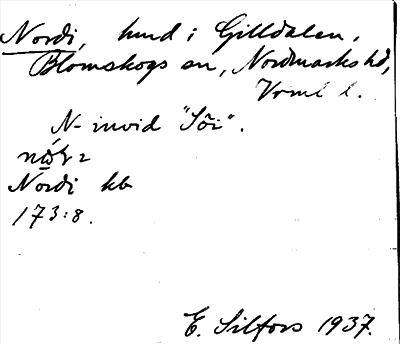 Nordi, lund i Gilldalen,
Blomskogs sn, Nordmarks hd,
Vrml l.
N- invid "Söi".
Nordi kb
173:8.
E. Silfors 1937.